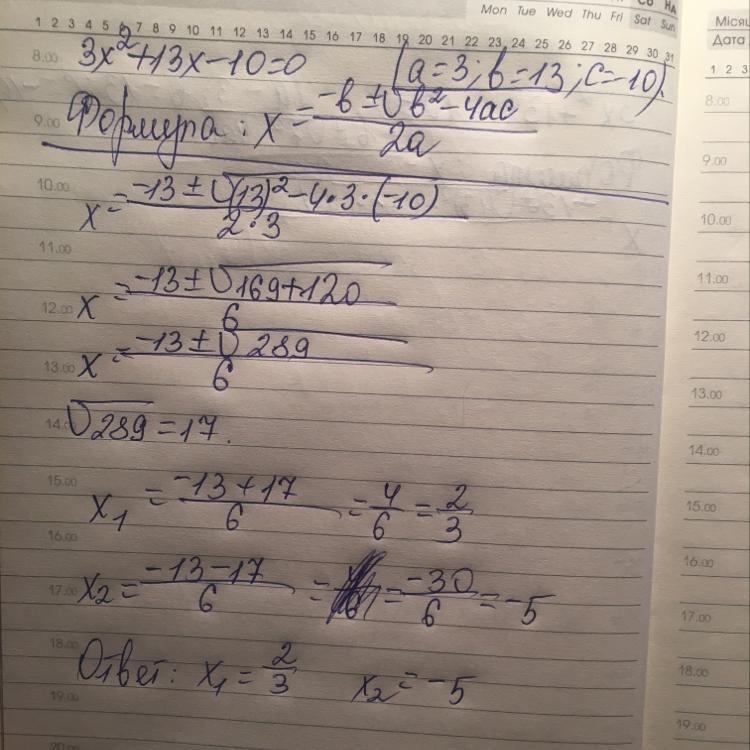 Mon Tue Wed Thu Fri Sat Sun
1 2 3 4 5 6 7 8 9 10 11 12 13 14 15 16 17 18 19 20 21 22 23 24 25 26 27 28 29 30 31
Місяц
Дата
1 2 3
8.00 3x²+13x-10=0 (a=3; b=13; c=-10).
8.00
9.00 Формула: x = (-b ± √(b²-4ac))/(2a)
9.00
10.00 x = (-13 ± √((13)²-4·3·(-10)))/(2·3)
10.00
11.00
11.00
12.00 x = (-13 ± √(169+120))/6
12.00
13.00 x = (-13 ± √289)/6
13.00
14.00 √289 = 17.
14.00
15.00 x₁ = (-13+17)/6 = 4/6 = 2/3
15.00
16.00
16.00
17.00 x₂ = (-13-17)/6 = = -30/6 = -5
17.00
18.00 Ответ: x₁ = 2/3 x₂ = -5
18.00
19.00
19.00